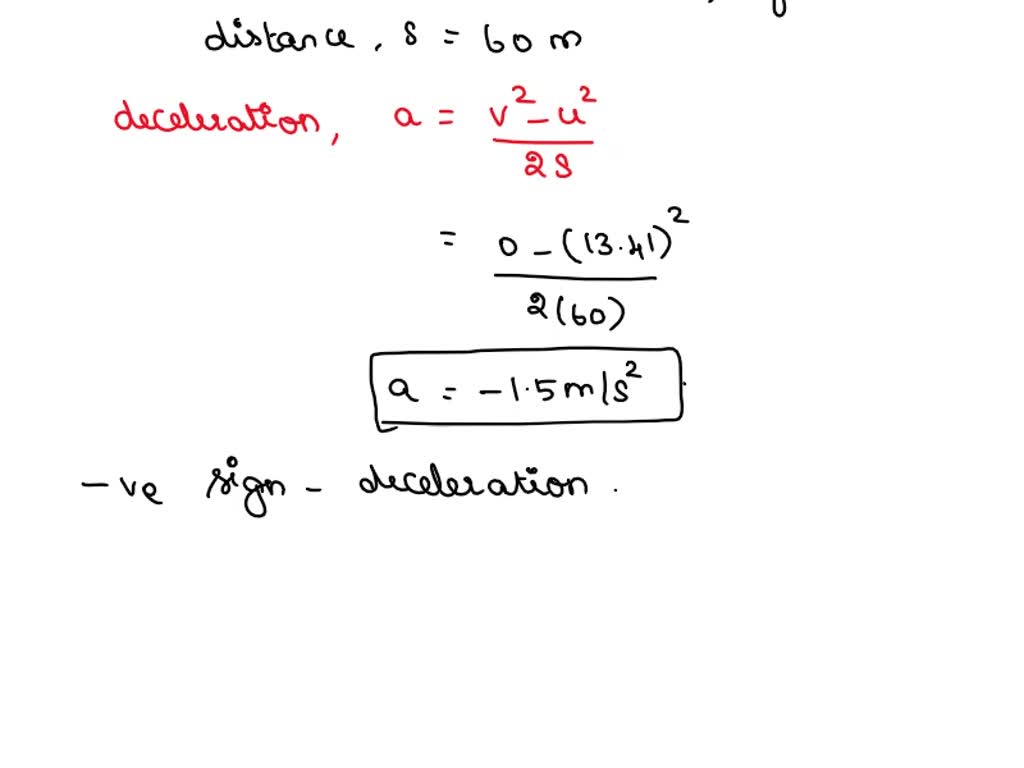 distance, s = 60 m
deceleration, a = v² - u² / 2s
= 0 - (13.41)² / 2(60)
a = -1.5 m/s²
-ve sign - deceleration.